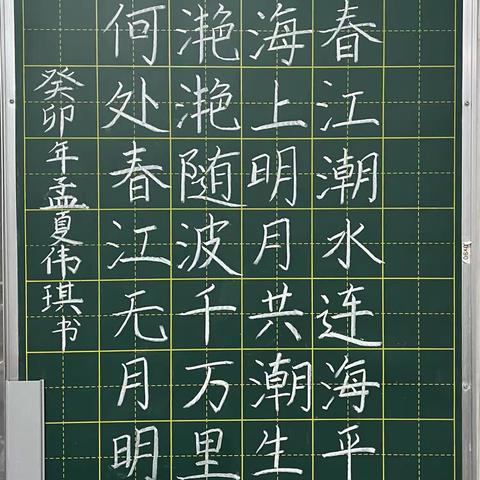 春江潮水连海平
海上明月共潮生
滟滟随波千万里
何处春江无月明
癸卯年孟夏伟琪书